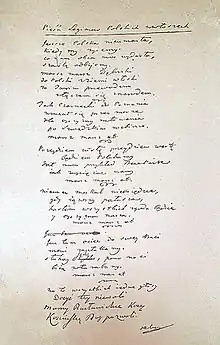 Pieśń Legionów Polskich we Włoszech
Jeszcze Polska nie umarła,
kiedy my żyjemy
co nam obca moc wydarła,
szablą odbijemy.
marsz marsz Dąbrowski
do Polski z ziemi włoski
za Twoim przewodem
złączem się z narodem.
Jak Czarniecki do Poznania
wracał się przez morze
dla ojczyzny ratowania
po szwedzkim rozbiorze.
marsz marsz etc
Przejdziem Wisłę przejdziem Wartę
będziem Polakami
dał nam przykład Bonaparte
jak zwyciężać mamy
marsz marsz etc
Niemiec Moskal nie osiędzie,
gdy jąwszy pałasza,
hasłem wszystkich zgoda będzie
y ojczyzna nasza
marsz marsz etc
Już tam ojciec do swej Basi
mówi zapłakany
słuchaj, pono nasi
biją w tarabany.
marsz marsz etc
Na to wszystkich jedne głosy
Dosyć tey niewoli
mamy Racławickie Kosy
Kościuszkę Bóg pozwoli.